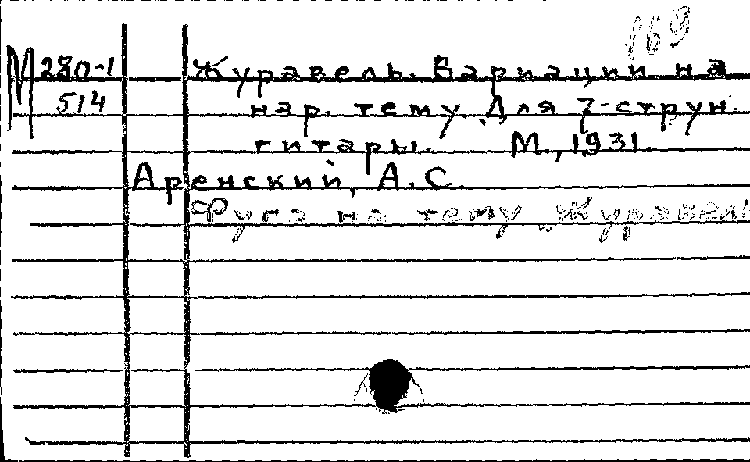 169
М 280-1 Журавель. Вариации на
514 нар. тему. Для 7-струн.
гитары. М., 1931.
Аренский, А.С.
Фуга на тему „Журавель